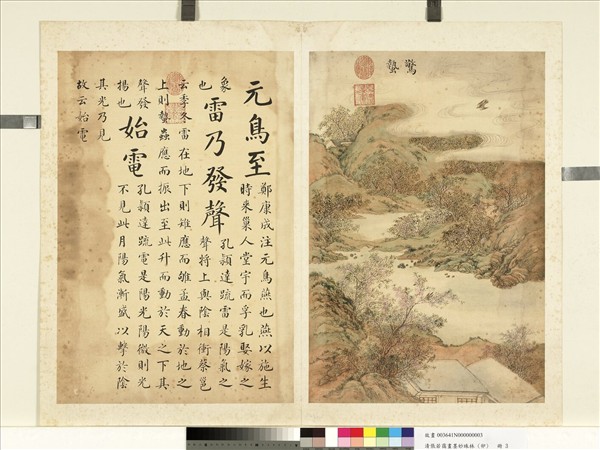 驚蟄
元鳥至
鄭康成注元鳥燕也燕以施生
時來巢人堂宇而孚乳娶嫁之
象
也
雷乃發聲
孔頴達疏雷是陽氣之
聲將上與陰相衝蔡邕
云季冬雷在地下則雉應而雊孟春動於地之
上則蟄蟲應而振出至此升而動於天之下其
聲發
揚也
始電
孔頴達疏電是陽光陽微則光
不見此月陽氣漸盛以擊於陰
其光乃見
故云始電
故畫 003641N000000003
清張若靄畫墨妙珠林（卯） 冊 3